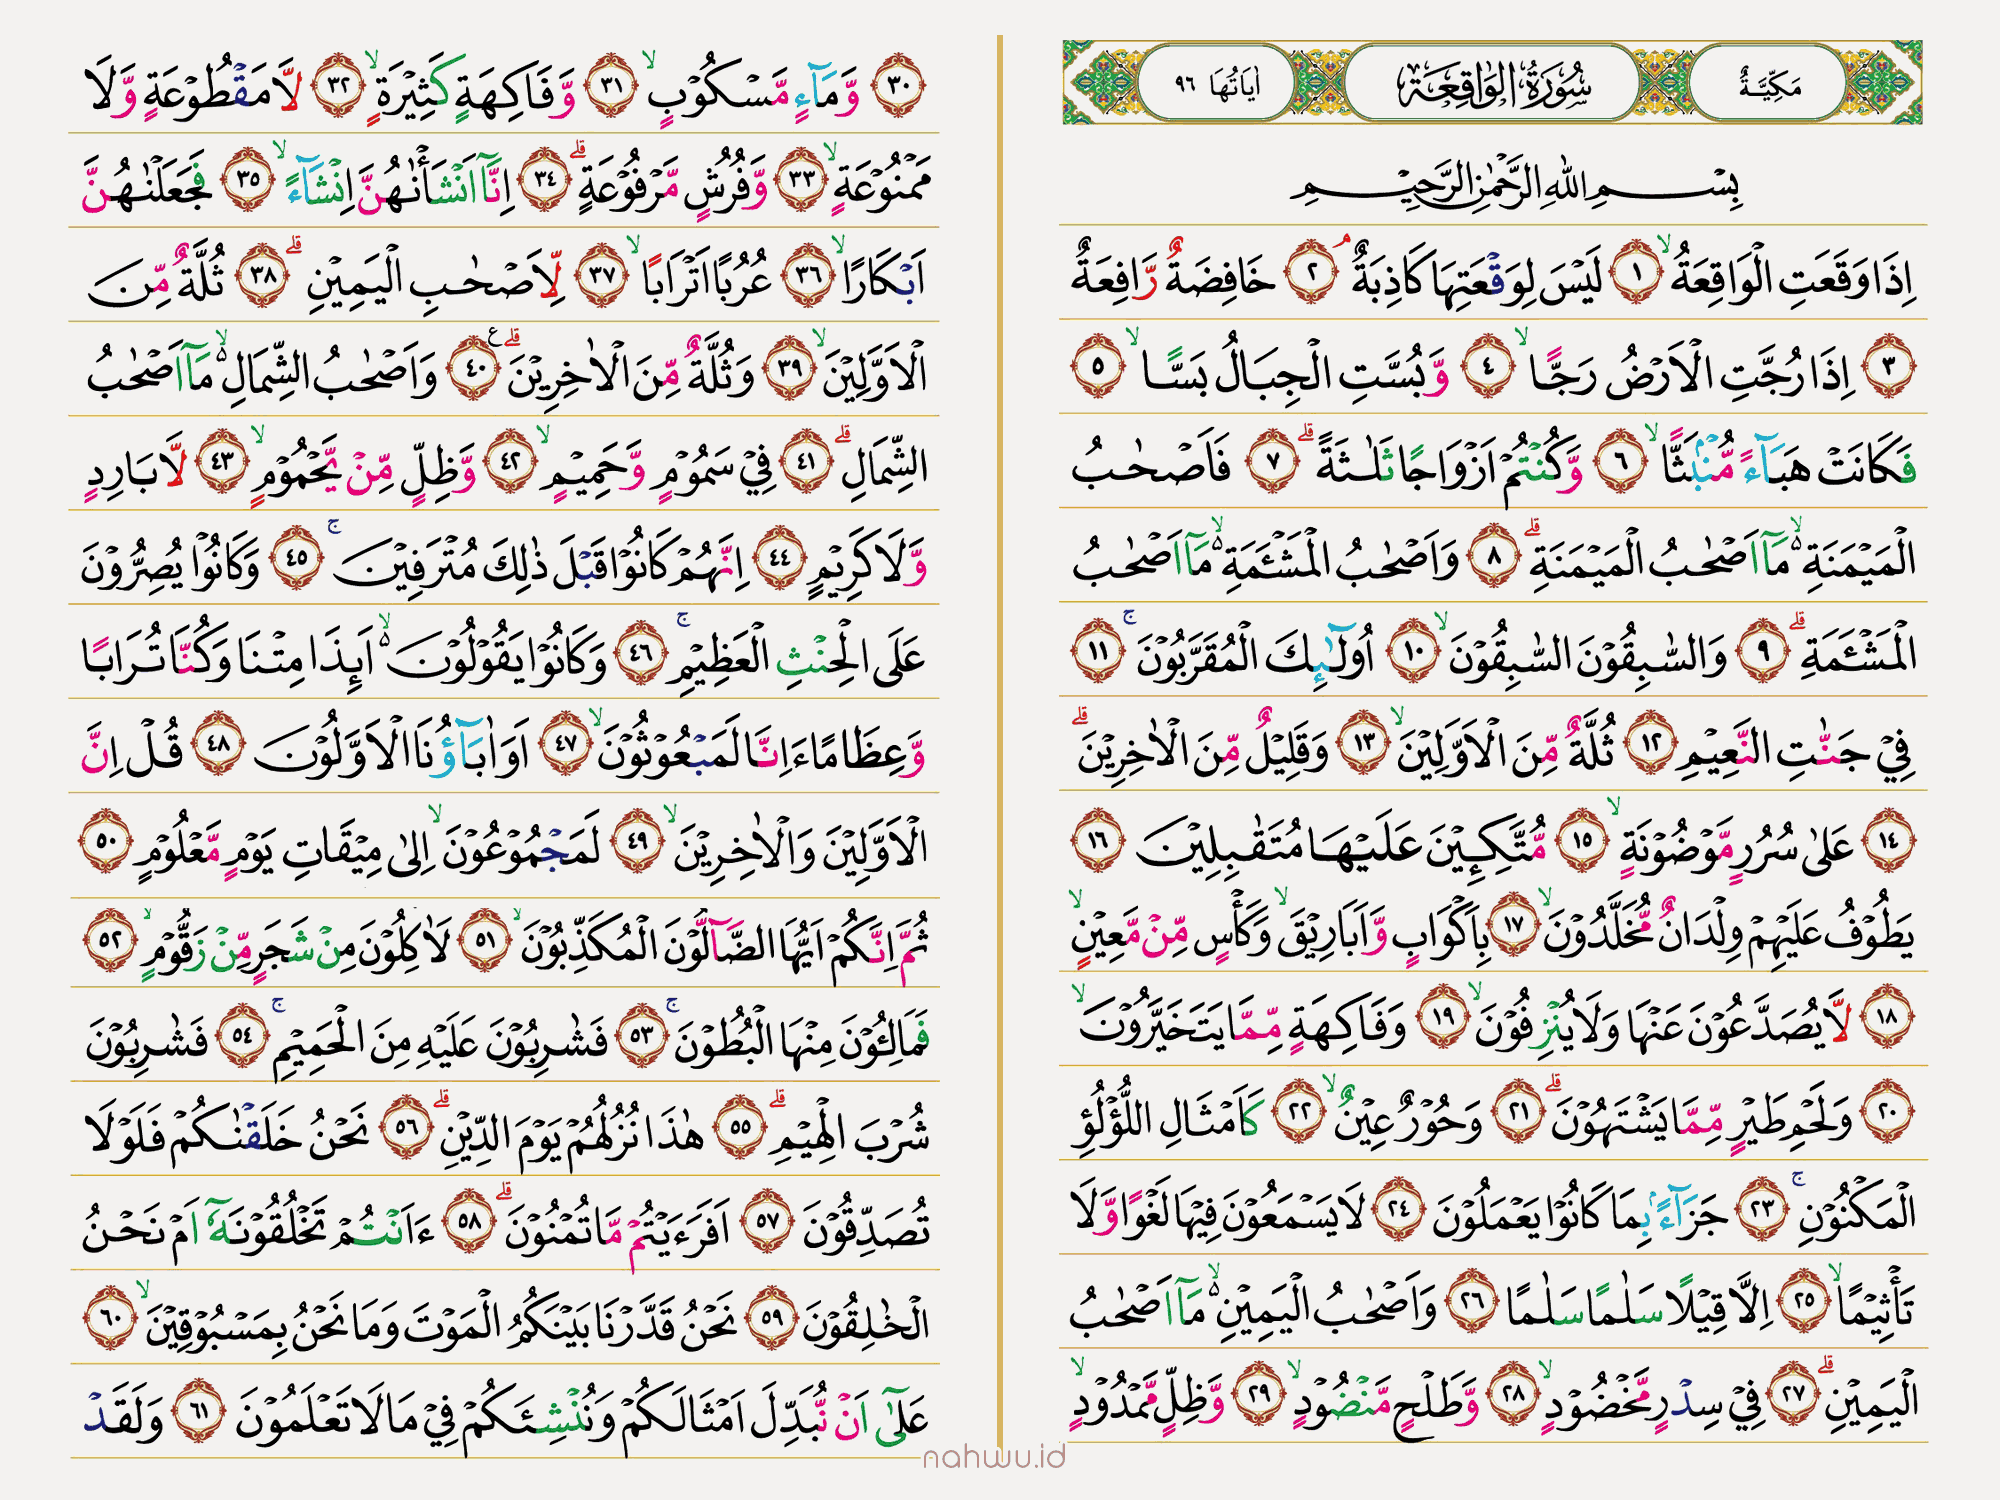 مَكِّيَّةٌ سُوْرَةُ الْوَاقِعَة اٰيَاتُهَا ٩٦
بِسْمِ اللّٰهِ الرَّحْمٰنِ الرَّحِيْمِ
اِذَا وَقَعَتِ الْوَاقِعَةُۙ ١ لَيْسَ لِوَقْعَتِهَا كَاذِبَةٌۘ ٢ خَافِضَةٌ رَّافِعَةٌ
٣ اِذَا رُجَّتِ الْاَرْضُ رَجًّاۙ ٤ وَّبُسَّتِ الْجِبَالُ بَسًّاۙ ٥
فَكَانَتْ هَبَاۤءً مُّنْۢبَثًّاۙ ٦ وَّكُنْتُمْ اَزْوَاجًا ثَلٰثَةًۗ ٧ فَاَصْحٰبُ
الْمَيْمَنَةِ ەۙ مَآ اَصْحٰبُ الْمَيْمَنَةِۗ ٨ وَاَصْحٰبُ الْمَشْـَٔمَةِ ەۙ مَآ اَصْحٰبُ
الْمَشْـَٔمَةِۗ ٩ وَالسّٰبِقُوْنَ السّٰبِقُوْنَۙ ١٠ اُولٰۤىِٕكَ الْمُقَرَّبُوْنَۚ ١١
فِيْ جَنّٰتِ النَّعِيْمِ ١٢ ثُلَّةٌ مِّنَ الْاَوَّلِيْنَۙ ١٣ وَقَلِيْلٌ مِّنَ الْاٰخِرِيْنَۗ
١٤ عَلٰى سُرُرٍ مَّوْضُوْنَةٍۙ ١٥ مُّتَّكِـِٕيْنَ عَلَيْهَا مُتَقٰبِلِيْنَ ١٦
يَطُوْفُ عَلَيْهِمْ وِلْدَانٌ مُّخَلَّدُوْنَۙ ١٧ بِاَكْوَابٍ وَّاَبَارِيْقَۙ وَكَأْسٍ مِّنْ مَّعِيْنٍۙ
١٨ لَّا يُصَدَّعُوْنَ عَنْهَا وَلَا يُنْزِفُوْنَۙ ١٩ وَفَاكِهَةٍ مِّمَّا يَتَخَيَّرُوْنَۙ
٢٠ وَلَحْمِ طَيْرٍ مِّمَّا يَشْتَهُوْنَۗ ٢١ وَحُوْرٌ عِيْنٌۙ ٢٢ كَاَمْثَالِ اللُّؤْلُؤِ
الْمَكْنُوْنِۚ ٢٣ جَزَاۤءًۢ بِمَا كَانُوْا يَعْمَلُوْنَ ٢٤ لَا يَسْمَعُوْنَ فِيْهَا لَغْوًا وَّلَا
تَأْثِيْمًاۙ ٢٥ اِلَّا قِيْلًا سَلٰمًا سَلٰمًا ٢٦ وَاَصْحٰبُ الْيَمِيْنِ ەۙ مَآ اَصْحٰبُ
الْيَمِيْنِۗ ٢٧ فِيْ سِدْرٍ مَّخْضُوْدٍۙ ٢٨ وَّطَلْحٍ مَّنْضُوْدٍۙ ٢٩ وَّظِلٍّ مَّمْدُوْدٍۙ
٣٠ وَّمَاۤءٍ مَّسْكُوْبٍۙ ٣١ وَّفَاكِهَةٍ كَثِيْرَةٍۙ ٣٢ لَّا مَقْطُوْعَةٍ وَّلَا
مَمْنُوْعَةٍۙ ٣٣ وَّفُرُشٍ مَّرْفُوْعَةٍۗ ٣٤ اِنَّآ اَنْشَأْنٰهُنَّ اِنْشَاۤءًۙ ٣٥ فَجَعَلْنٰهُنَّ
اَبْكَارًاۙ ٣٦ عُرُبًا اَتْرَابًاۙ ٣٧ لِّاَصْحٰبِ الْيَمِيْنِۗ ٣٨ ثُلَّةٌ مِّنَ
الْاَوَّلِيْنَۙ ٣٩ وَثُلَّةٌ مِّنَ الْاٰخِرِيْنَۗ ع ٤٠ وَاَصْحٰبُ الشِّمَالِ ەۙ مَآ اَصْحٰبُ
الشِّمَالِۗ ٤١ فِيْ سَمُوْمٍ وَّحَمِيْمٍۙ ٤٢ وَّظِلٍّ مِّنْ يَّحْمُوْمٍۙ ٤٣ لَّا بَارِدٍ
وَّلَا كَرِيْمٍ ٤٤ اِنَّهُمْ كَانُوْا قَبْلَ ذٰلِكَ مُتْرَفِيْنَۚ ٤٥ وَكَانُوْا يُصِرُّوْنَ
عَلَى الْحِنْثِ الْعَظِيْمِۚ ٤٦ وَكَانُوْا يَقُوْلُوْنَ ەۙ اَىِٕذَا مِتْنَا وَكُنَّا تُرَابًا
وَّعِظَامًا ءَاِنَّا لَمَبْعُوْثُوْنَۙ ٤٧ اَوَاٰبَاۤؤُنَا الْاَوَّلُوْنَ ٤٨ قُلْ اِنَّ
الْاَوَّلِيْنَ وَالْاٰخِرِيْنَۙ ٤٩ لَمَجْمُوْعُوْنَۙ اِلٰى مِيْقَاتِ يَوْمٍ مَّعْلُوْمٍ ٥٠
ثُمَّ اِنَّكُمْ اَيُّهَا الضَّاۤلُّوْنَ الْمُكَذِّبُوْنَۙ ٥١ لَاٰكِلُوْنَ مِنْ شَجَرٍ مِّنْ زَقُّوْمٍۙ ٥٢
فَمَالِـُٔوْنَ مِنْهَا الْبُطُوْنَۚ ٥٣ فَشٰرِبُوْنَ عَلَيْهِ مِنَ الْحَمِيْمِۚ ٥٤ فَشٰرِبُوْنَ
شُرْبَ الْهِيْمِۗ ٥٥ هٰذَا نُزُلُهُمْ يَوْمَ الدِّيْنِۗ ٥٦ نَحْنُ خَلَقْنٰكُمْ فَلَوْلَا
تُصَدِّقُوْنَ ٥٧ اَفَرَءَيْتُمْ مَّا تُمْنُوْنَۗ ٥٨ ءَاَنْتُمْ تَخْلُقُوْنَهٗٓ اَمْ نَحْنُ
الْخٰلِقُوْنَ ٥٩ نَحْنُ قَدَّرْنَا بَيْنَكُمُ الْمَوْتَ وَمَا نَحْنُ بِمَسْبُوْقِيْنَۙ ٦٠
عَلٰٓى اَنْ نُّبَدِّلَ اَمْثَالَكُمْ وَنُنْشِئَكُمْ فِيْ مَا لَا تَعْلَمُوْنَ ٦١ وَلَقَدْ
nahwu.id